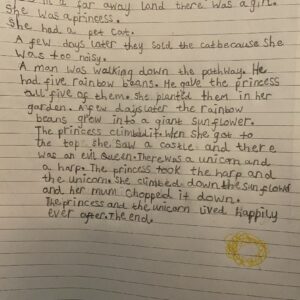 in a far away land there was a girl.
She was a princess.
She had a pet cat.
A few days later they sold the cat because she
was too noisy.
A man was walking down the pathway. He
had five rainbow beans. He gave the princess
all five of them. She planted them in her
garden. A few days later the rainbow
beans grew into a giant sunflower.
The princess climbed it. When she got to
the top she saw a castle and there
was an evil queen. There was a unicorn and
a harp. The princess took the harp and
the unicorn. She climbed down the sunflower
and her mum chopped it down.
The princess and the unicorn lived Happily
ever after. The end.